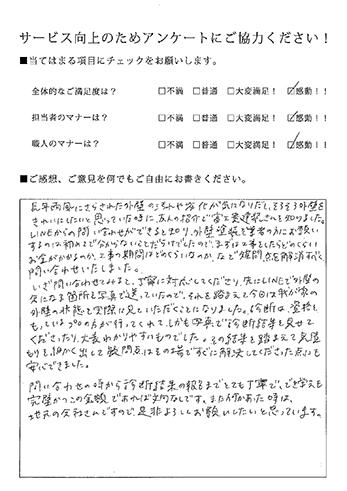 サービス向上のためアンケートにご協力ください！
■当てはまる項目にチェックをお願いします。
全体的なご満足度は？ □不満 □普通 □大変満足！ ☑感動！！
担当者のマナーは？ □不満 □普通 □大変満足！ ☑感動！！
職人のマナーは？ □不満 □普通 □大変満足！ ☑感動！！
■ご感想、ご意見を何でもご自由にお書きください。
長年雨風にさらされた外壁の汚れや劣化が気になりだし、そろそろ外壁を
きれいにしたいと思っていた時に、友人の紹介で富士美建装さんを知りました。
LINEからの問い合わせができると知り、外壁塗装を業者の方にお願い
するのは初めてで分からないことだらけでしたので、まずは工事をしたらどのくらい
お金がかかるのか、工事の期間はどのくらいなのか、など疑問点を解消すべく
問い合わせいたしました。
いざ問い合わせてみると、丁寧に対応してくださり、先にLINEで外壁の
気になる箇所を写真で送っていたので、それを踏まえて今日は我が家の
外壁の状態を実際に見ていただくことになりました。診断は、資格を
もっているプロの方が行ってくれて、しかも写真で診断結果を見せて
くださったり、大変わかりやすいものでした。その結果を踏まえて見積
もりも細かく出して疑問点はその場ですぐに解決してくださった点にも
安心できました。
問い合わせの時から診断結果の報告までとても丁寧で、でき栄えも
完璧かつこの金額であれば文句なしです。また何かあった時は、
地元の会社さんですので、是非よろしくお願いしたいと思っています。